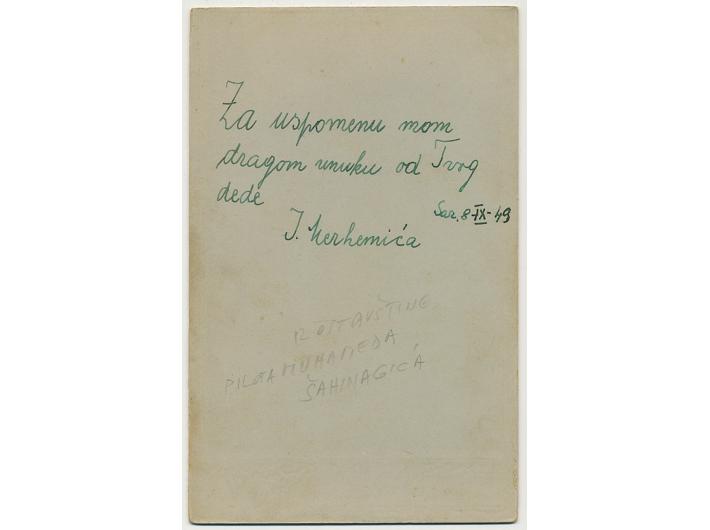 Za uspomenu mom
dragom unuku od Tvog
dede
Sar. 8-IX-49
J. Merhemića
IZ OSTAVŠTINE
PILOTA MUHAMEDA
ŠAHINAGIĆA